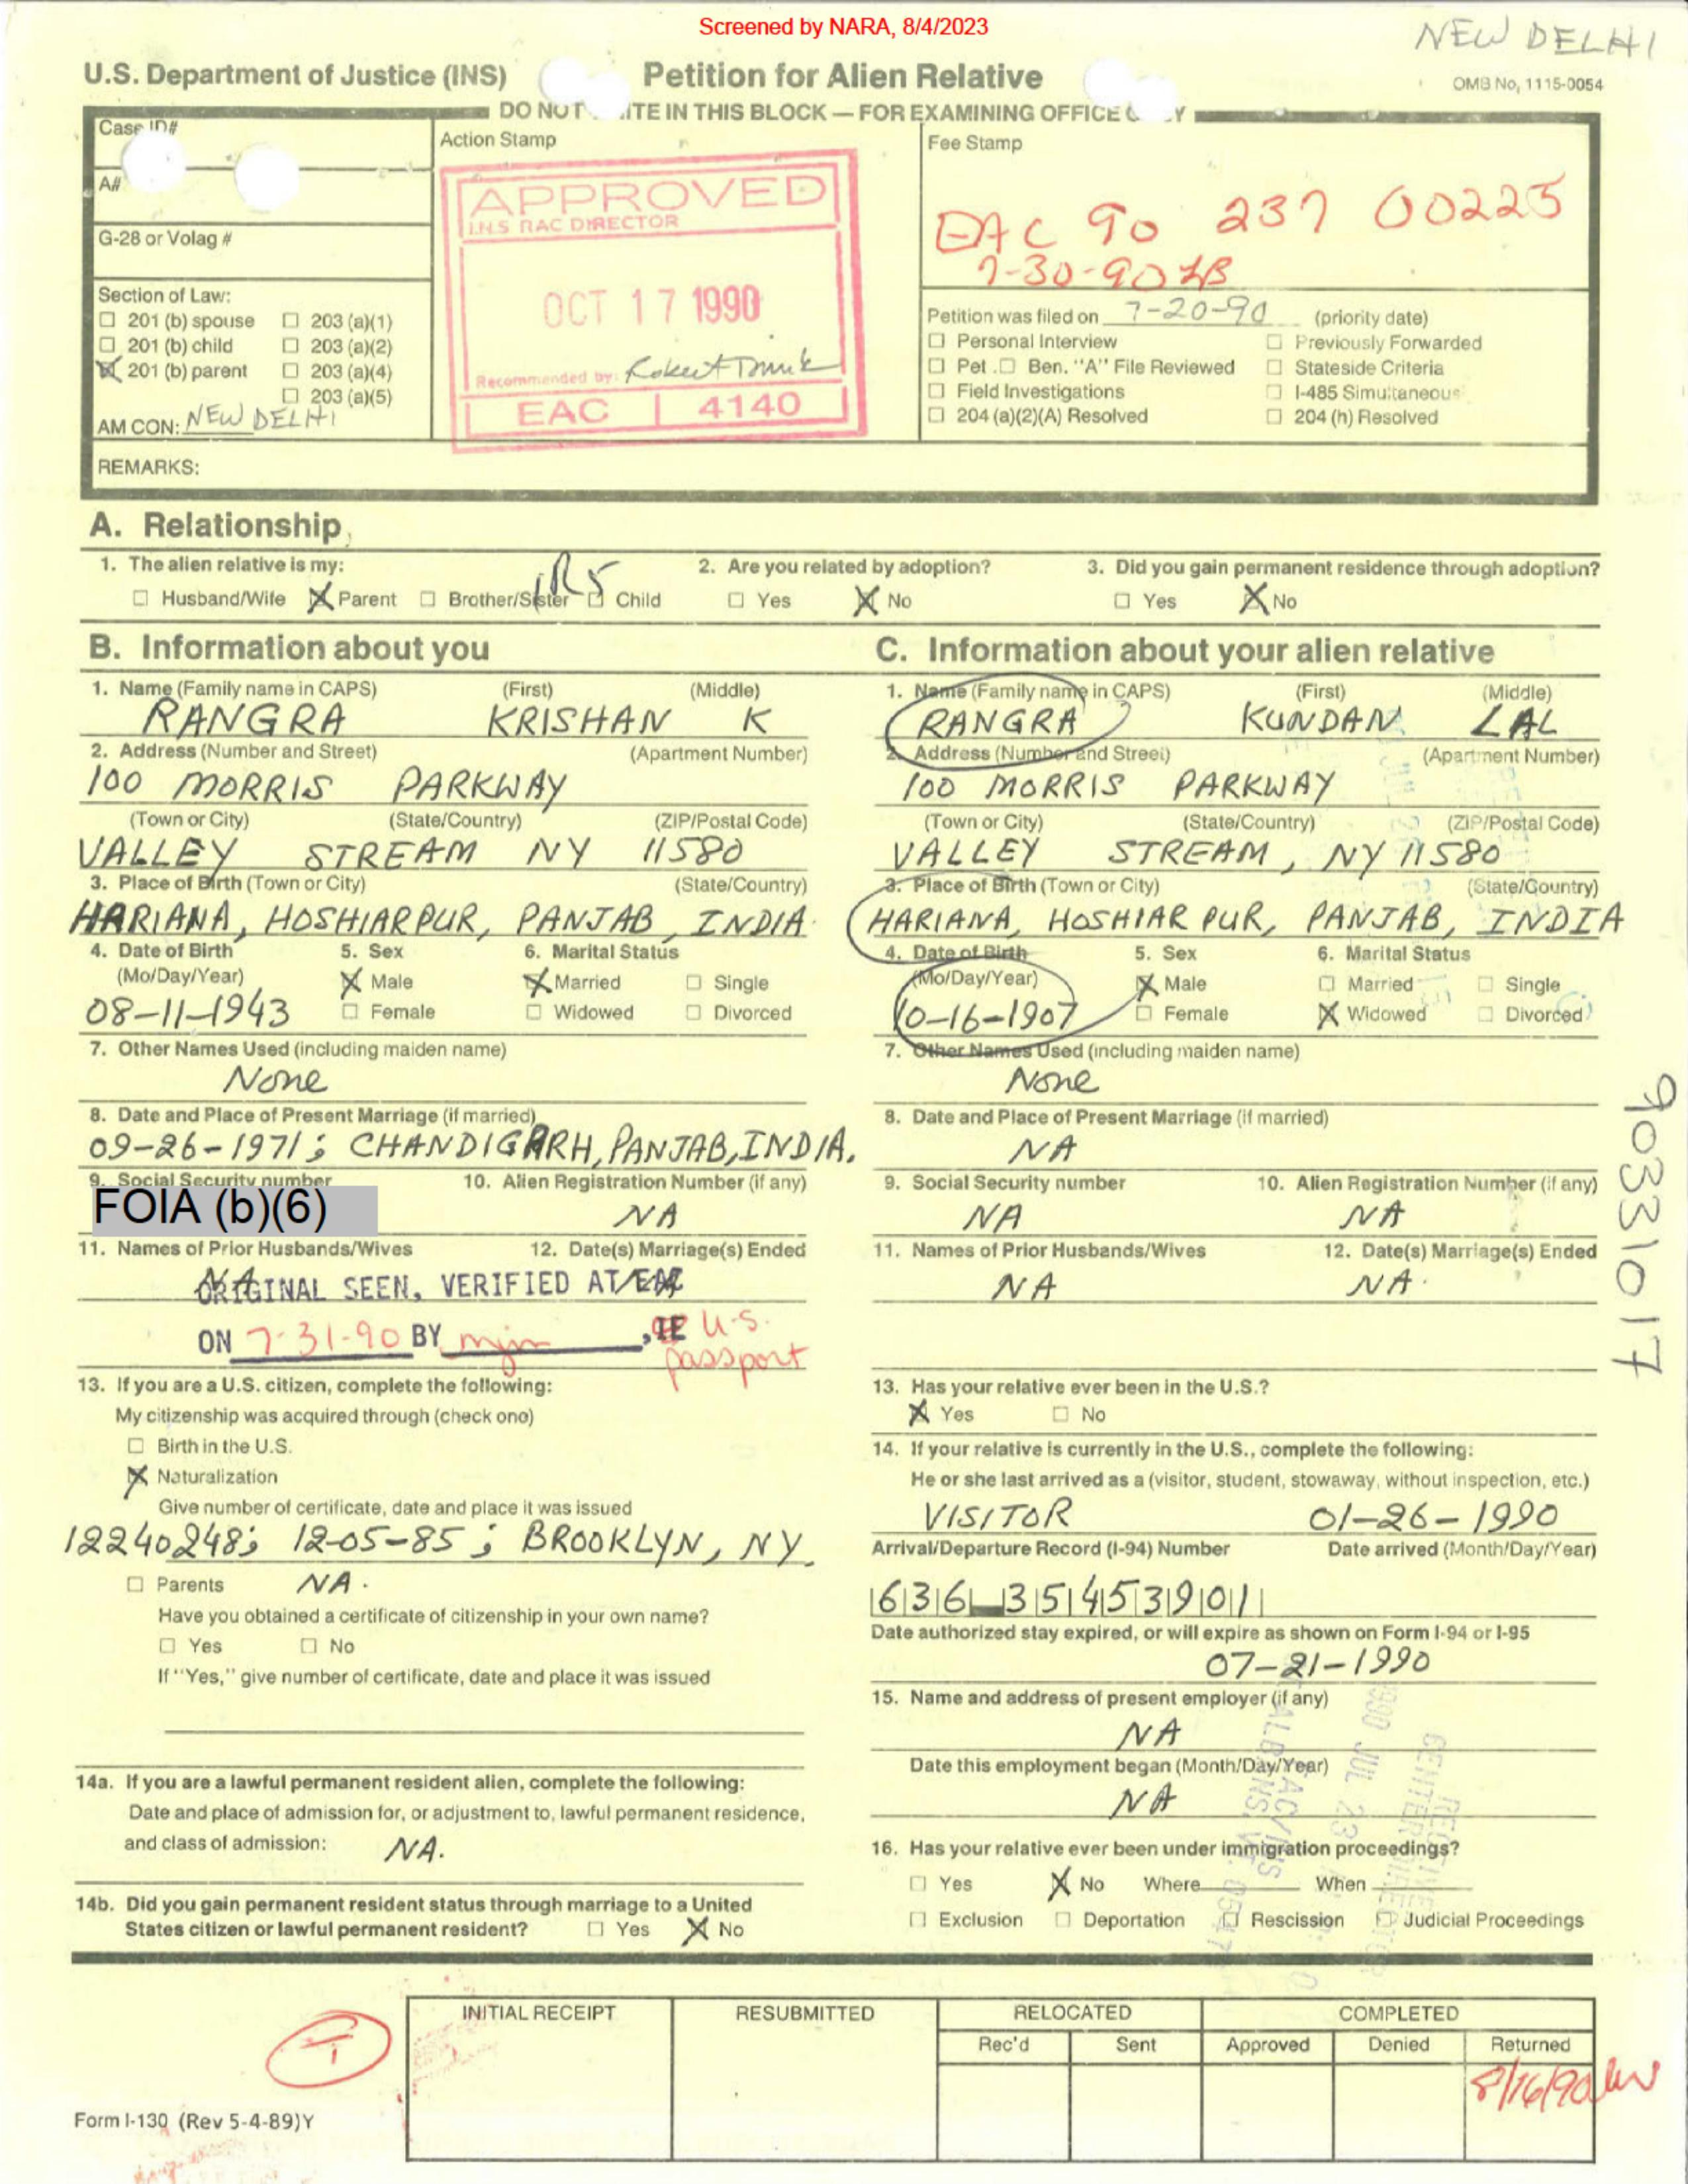 Screened by NARA, 8/4/2023
NEW DELHI
U.S. Department of Justice (INS) Petition for Alien Relative OMB No, 1115-0054
DO NOT ITE IN THIS BLOCK — FOR EXAMINING OFFICE Y
Case ID#
Action Stamp
Fee Stamp
A#
G-28 or Volag #
APPROVED
I.N.S RAC DIRECTOR
OCT 17 1990
Recommended by:
EAC 4140
EAC 90 237 00225
7-30-90
Section of Law:
☐ 201 (b) spouse ☐ 203 (a)(1)
☐ 201 (b) child ☐ 203 (a)(2)
☒ 201 (b) parent ☐ 203 (a)(4)
☐ 203 (a)(5)
AM CON: NEW DELHI
Petition was filed on 7-20-90 (priority date)
☐ Personal Interview ☐ Previously Forwarded
☐ Pet. ☐ Ben. "A" File Reviewed ☐ Stateside Criteria
☐ Field Investigations ☐ I-485 Simultaneous
☐ 204 (a)(2)(A) Resolved ☐ 204 (h) Resolved
REMARKS:
A. Relationship
1. The alien relative is my: 2. Are you related by adoption? 3. Did you gain permanent residence through adoption?
IR5
☐ Husband/Wife ☒ Parent ☐ Brother/Sister ☐ Child ☐ Yes ☒ No ☐ Yes ☒ No
B. Information about you
1. Name (Family name in CAPS) (First) (Middle)
RANGRA KRISHAN K
2. Address (Number and Street) (Apartment Number)
100 MORRIS PARKWAY
(Town or City) (State/Country) (ZIP/Postal Code)
VALLEY STREAM NY 11580
3. Place of Birth (Town or City) (State/Country)
HARIANA, HOSHIARPUR, PANJAB, INDIA.
4. Date of Birth 5. Sex 6. Marital Status
(Mo/Day/Year) ☒ Male ☒ Married ☐ Single
08-11-1943 ☐ Female ☐ Widowed ☐ Divorced
7. Other Names Used (including maiden name)
None
8. Date and Place of Present Marriage (if married)
09-26-1971; CHANDIGARH, PANJAB, INDIA.
9. Social Security number 10. Alien Registration Number (if any)
FOIA (b)(6) NA
11. Names of Prior Husbands/Wives 12. Date(s) Marriage(s) Ended
NA
ORIGINAL SEEN, VERIFIED AT EAC
ON 7-31-90 BY mjm , IE U.S.
passport
13. If you are a U.S. citizen, complete the following:
My citizenship was acquired through (check one)
☐ Birth in the U.S.
☒ Naturalization
Give number of certificate, date and place it was issued
12240248; 12-05-85; BROOKLYN, NY.
☐ Parents NA.
Have you obtained a certificate of citizenship in your own name?
☐ Yes ☐ No
If "Yes," give number of certificate, date and place it was issued
14a. If you are a lawful permanent resident alien, complete the following:
Date and place of admission for, or adjustment to, lawful permanent residence,
and class of admission: NA.
14b. Did you gain permanent resident status through marriage to a United
States citizen or lawful permanent resident? ☐ Yes ☒ No
C. Information about your alien relative
1. Name (Family name in CAPS) (First) (Middle)
RANGRA KUNDAN LAL
2. Address (Number and Street) (Apartment Number)
100 MORRIS PARKWAY
(Town or City) (State/Country) (ZIP/Postal Code)
VALLEY STREAM, NY 11580
3. Place of Birth (Town or City) (State/Country)
HARIANA, HOSHIAR PUR, PANJAB, INDIA
4. Date of Birth 5. Sex 6. Marital Status
(Mo/Day/Year) ☒ Male ☐ Married ☐ Single
10-16-1907 ☐ Female ☒ Widowed ☐ Divorced
7. Other Names Used (including maiden name)
None
8. Date and Place of Present Marriage (if married)
NA
9. Social Security number 10. Alien Registration Number (if any)
NA NA
11. Names of Prior Husbands/Wives 12. Date(s) Marriage(s) Ended
NA NA.
13. Has your relative ever been in the U.S.?
☒ Yes ☐ No
14. If your relative is currently in the U.S., complete the following:
He or she last arrived as a (visitor, student, stowaway, without inspection, etc.)
VISITOR 01-26-1990
Arrival/Departure Record (I-94) Number Date arrived (Month/Day/Year)
636 35453901
Date authorized stay expired, or will expire as shown on Form I-94 or I-95
07-21-1990
15. Name and address of present employer (if any)
NA
Date this employment began (Month/Day/Year)
NA
16. Has your relative ever been under immigration proceedings?
☐ Yes ☒ No Where When
☐ Exclusion ☐ Deportation ☐ Rescission ☐ Judicial Proceedings
90331017
INITIAL RECEIPT RESUBMITTED RELOCATED COMPLETED
Rec'd Sent Approved Denied Returned
8/16/90
Form I-130 (Rev 5-4-89)Y